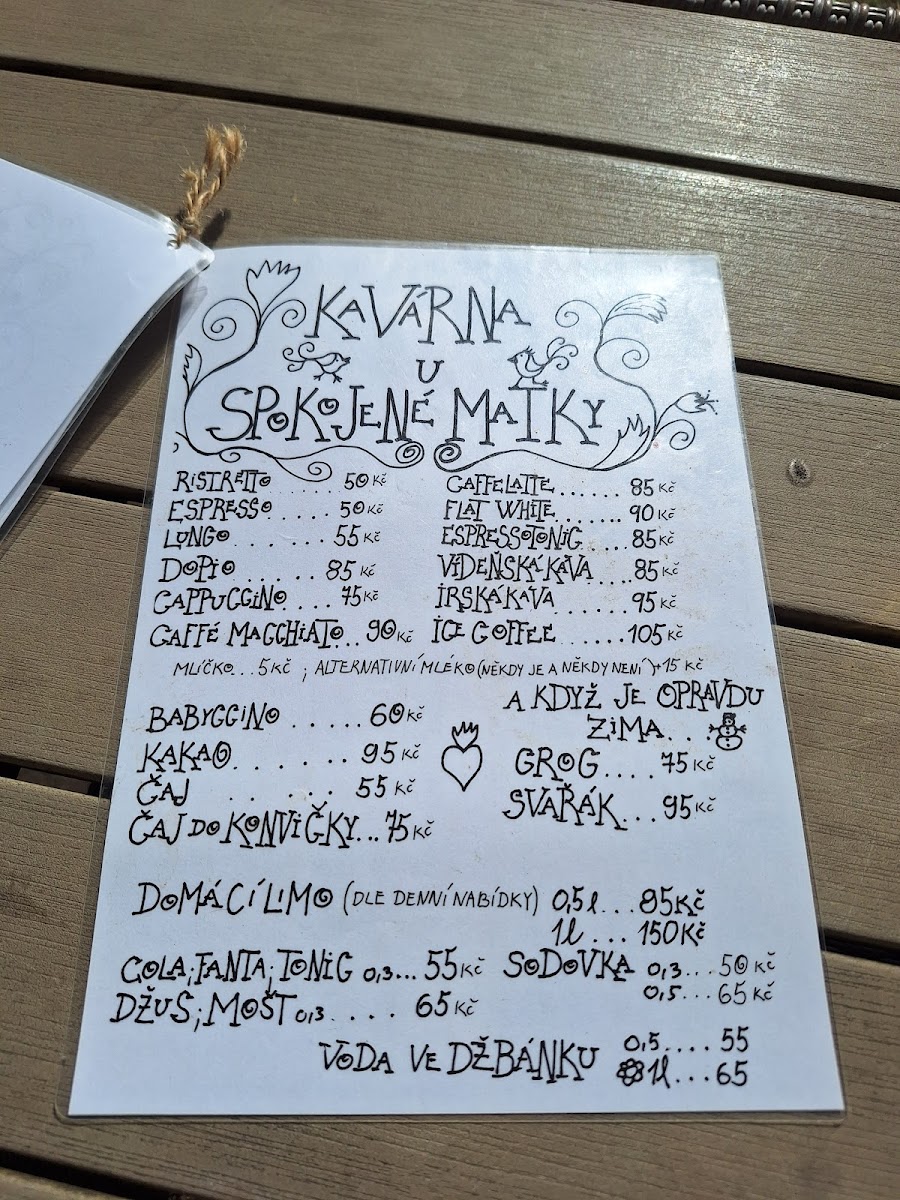 KAVÁRNA
U
SPOKOJENÉ MATKY
RISTRETTO ...... 50 Kč
ESPRESSO ..... 50 Kč
LUNGO ...... 55 Kč
DOPIO ...... 85 Kč
CAPPUCCINO .... 75 Kč
CAFFÉ MACCHIATO.. 90 Kč
CAFFELATTE ...... 85 Kč
FLAT WHITE ....... 90 Kč
ESPRESSOTONIC .... 85 Kč
VÍDEŇSKÁ KÁVA .... 85 Kč
IRSKÁ KÁVA ...... 95 Kč
ICE COFFEE ...... 105 Kč
MLÍČKO... 5 KČ ; ALTERNATIVNÍ MLÉKO (NĚKDY JE A NĚKDY NENÍ) +15 KČ
BABYCCINO ..... 60 Kč
KAKAO ...... 95 Kč
ČAJ ...... 55 Kč
ČAJ DO KONVIČKY... 75 Kč
A KDYŽ JE OPRAVDU
ZIMA...
GROG .... 75 Kč
SVAŘÁK ... 95 Kč
DOMÁCÍ LIMO (DLE DENNÍ NABÍDKY) 0,5 l ... 85 Kč
1l ... 150 Kč
COLA, FANTA, TONIC 0,3... 55 Kč
DŽUS, MOŠT 0,3 .... 65 Kč
SODOVKA 0,3... 50 Kč
0,5... 65 Kč
VODA VE DŽBÁNKU 0,5.... 55
1l ... 65